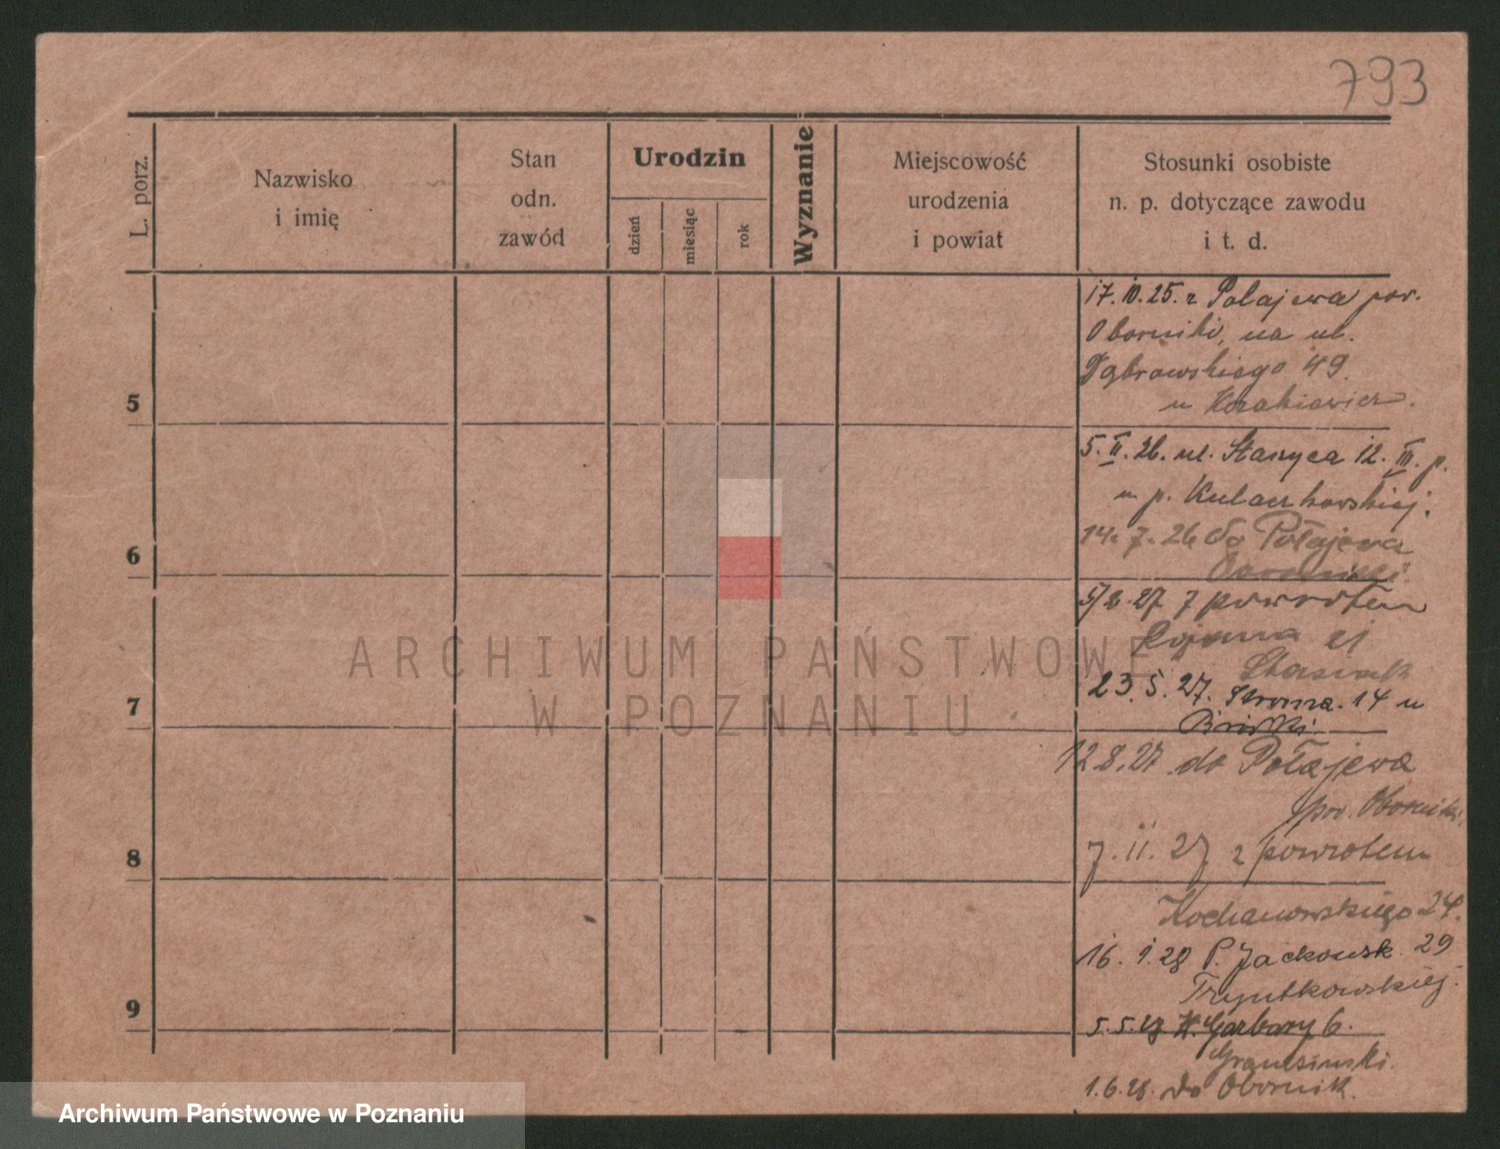 793
L. porz.
Nazwisko
i imię
Stan
odn.
zawód
Urodzin
dzień
miesiąc
rok
Wyznanie
Miejscowość
urodzenia
i powiat
Stosunki osobiste
n. p. dotyczące zawodu
i t. d.
17.10.25. z Połajewa pow.
Oborniki, na ul.
Dąbrowskiego 49
u
5
5.II.26. ul. 12. III. p.
u p.
14.7.26 do Połajewa
Oborniki
6
5/2.27 z powrotem
23.5.27. Stroma 14 u
7
12.8.27 do Połajewa
pow. Oborniki
7.11.27 z powrotem
8
Kochanowskiego 24.
16.1.28 P. Jackowsk. 29
Tryutkowskiej.
5.5.28 W. Garbary 6.
9
1.6.28. do Obornik.
ARCHIWUM PAŃSTWOWE
W POZNANIU
Archiwum Państwowe w Poznaniu